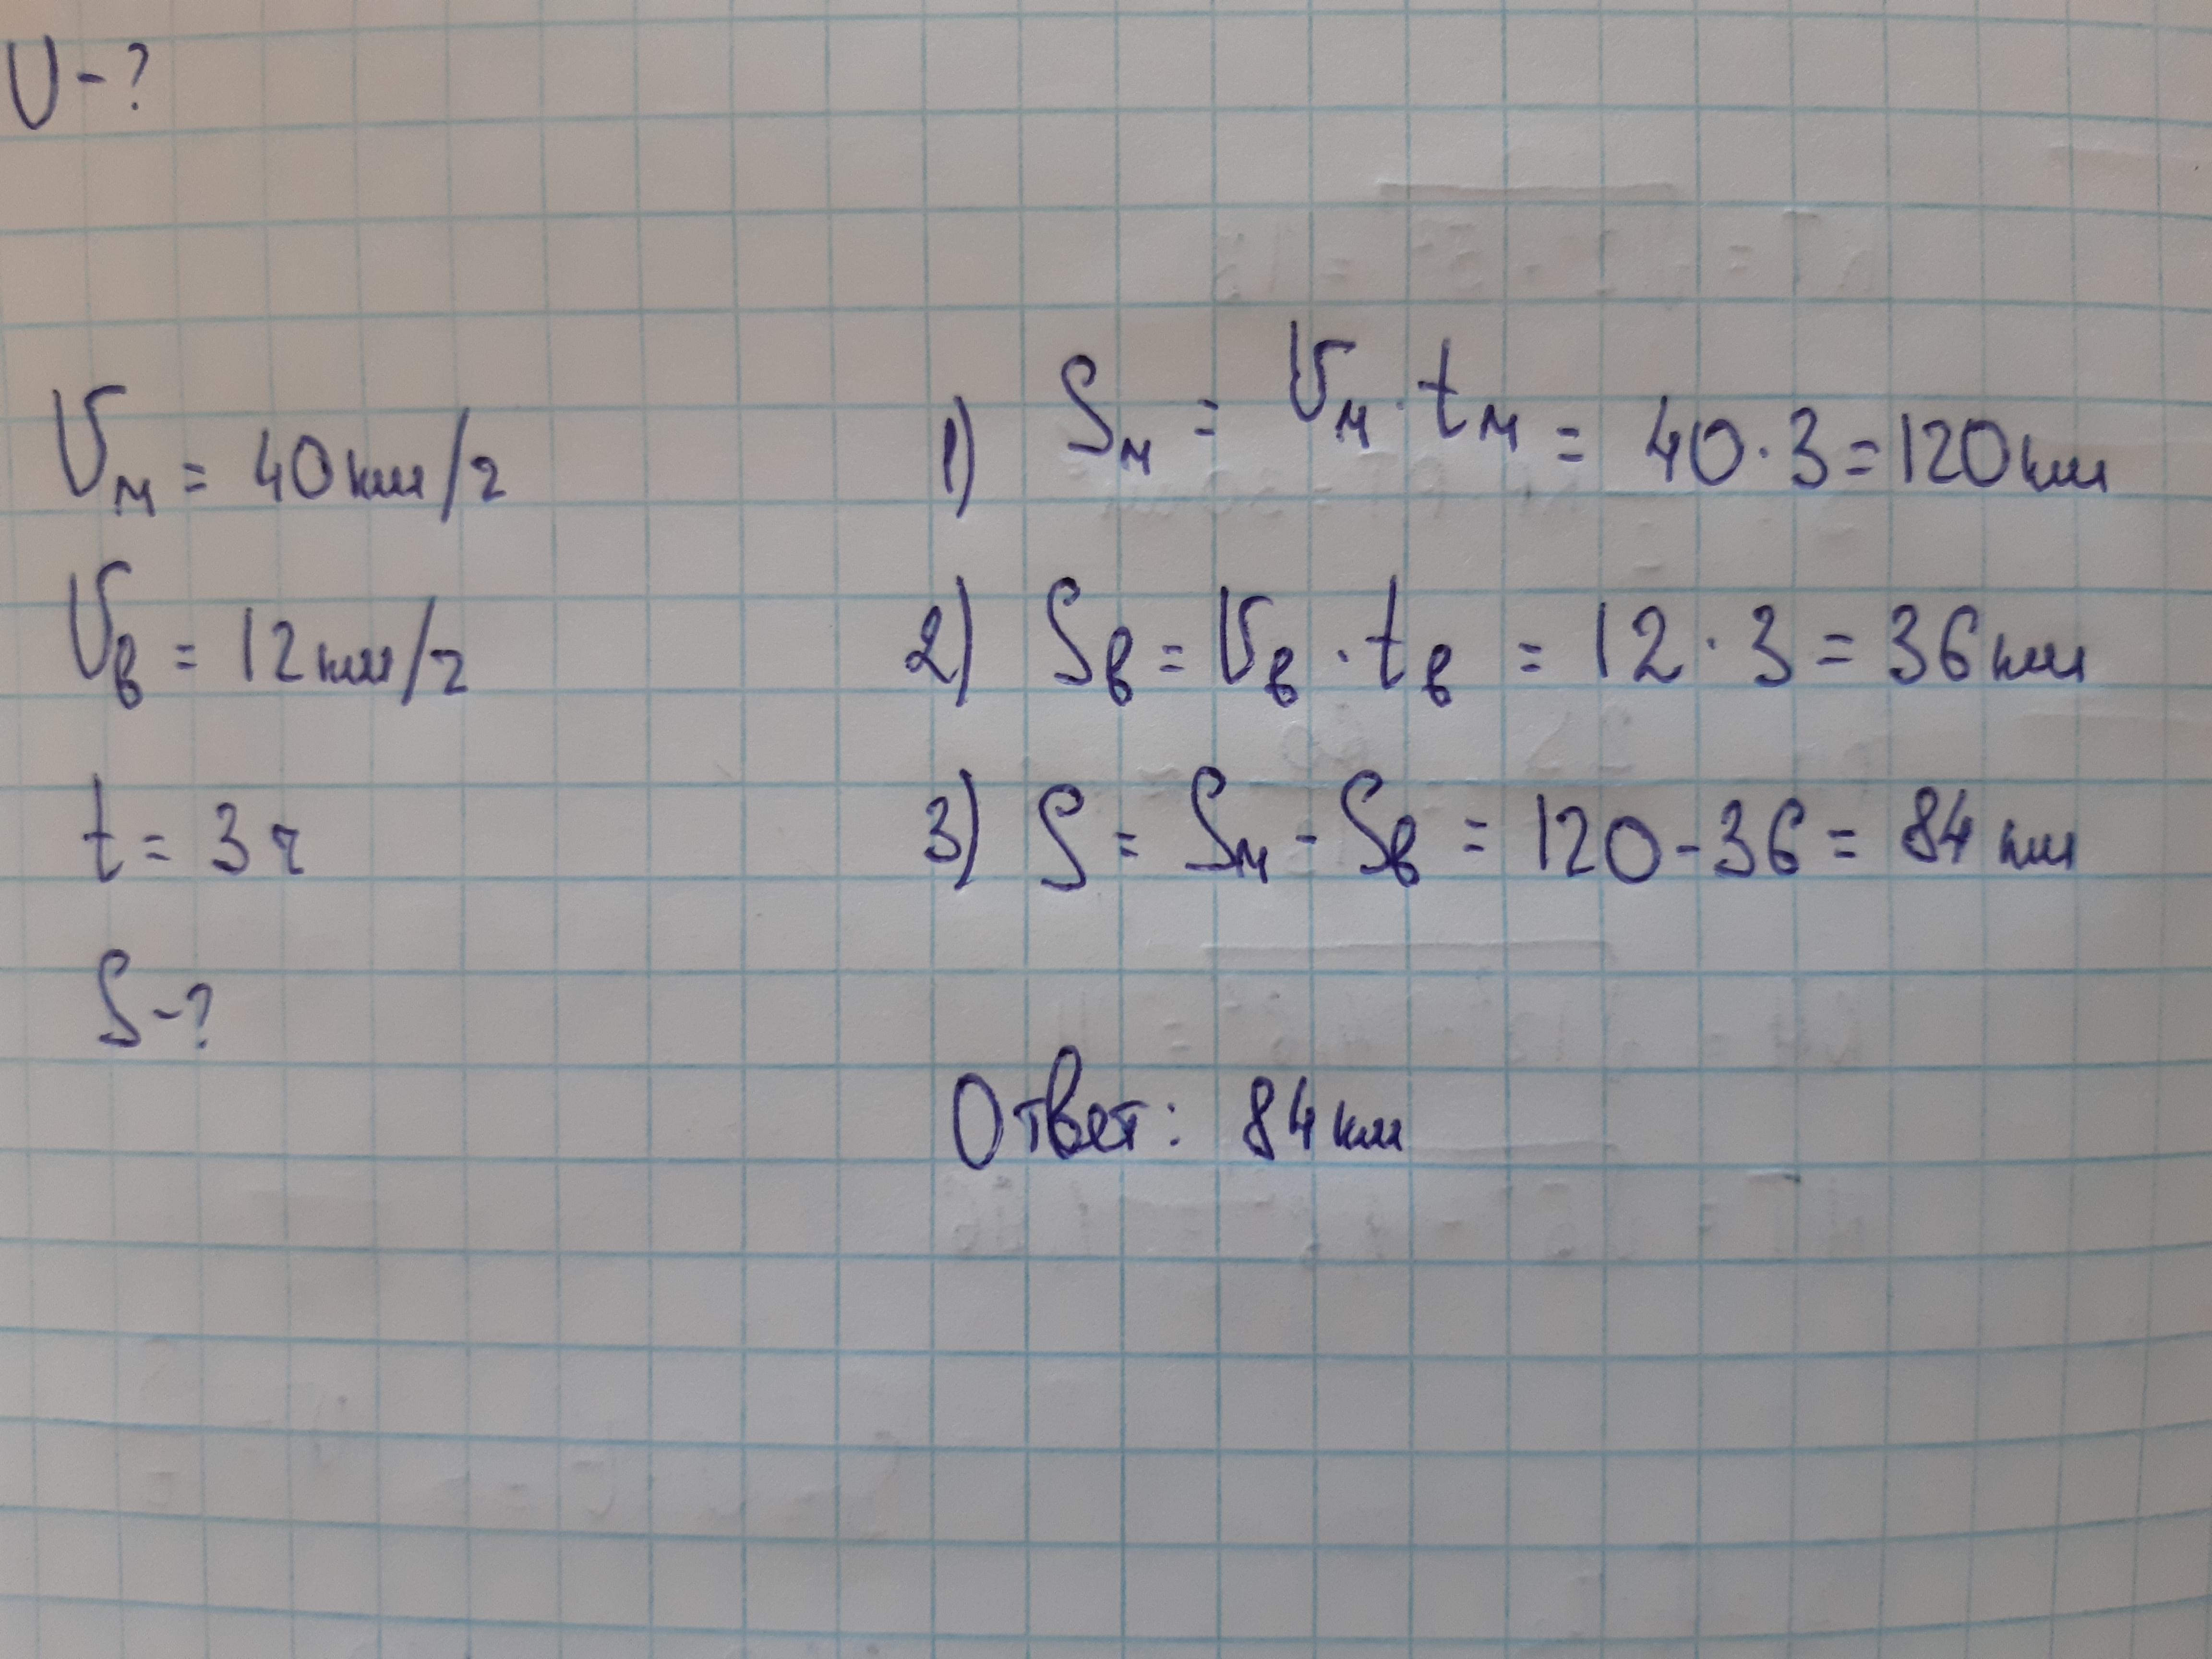 υ - ?
υм = 40 км/ч
υв = 12 км/ч
t = 3 ч
S - ?
1) Sм = υм · tм = 40 · 3 = 120 км
2) Sв = υв · tв = 12 · 3 = 36 км
3) S = Sм - Sв = 120 - 36 = 84 км
Ответ: 84 км